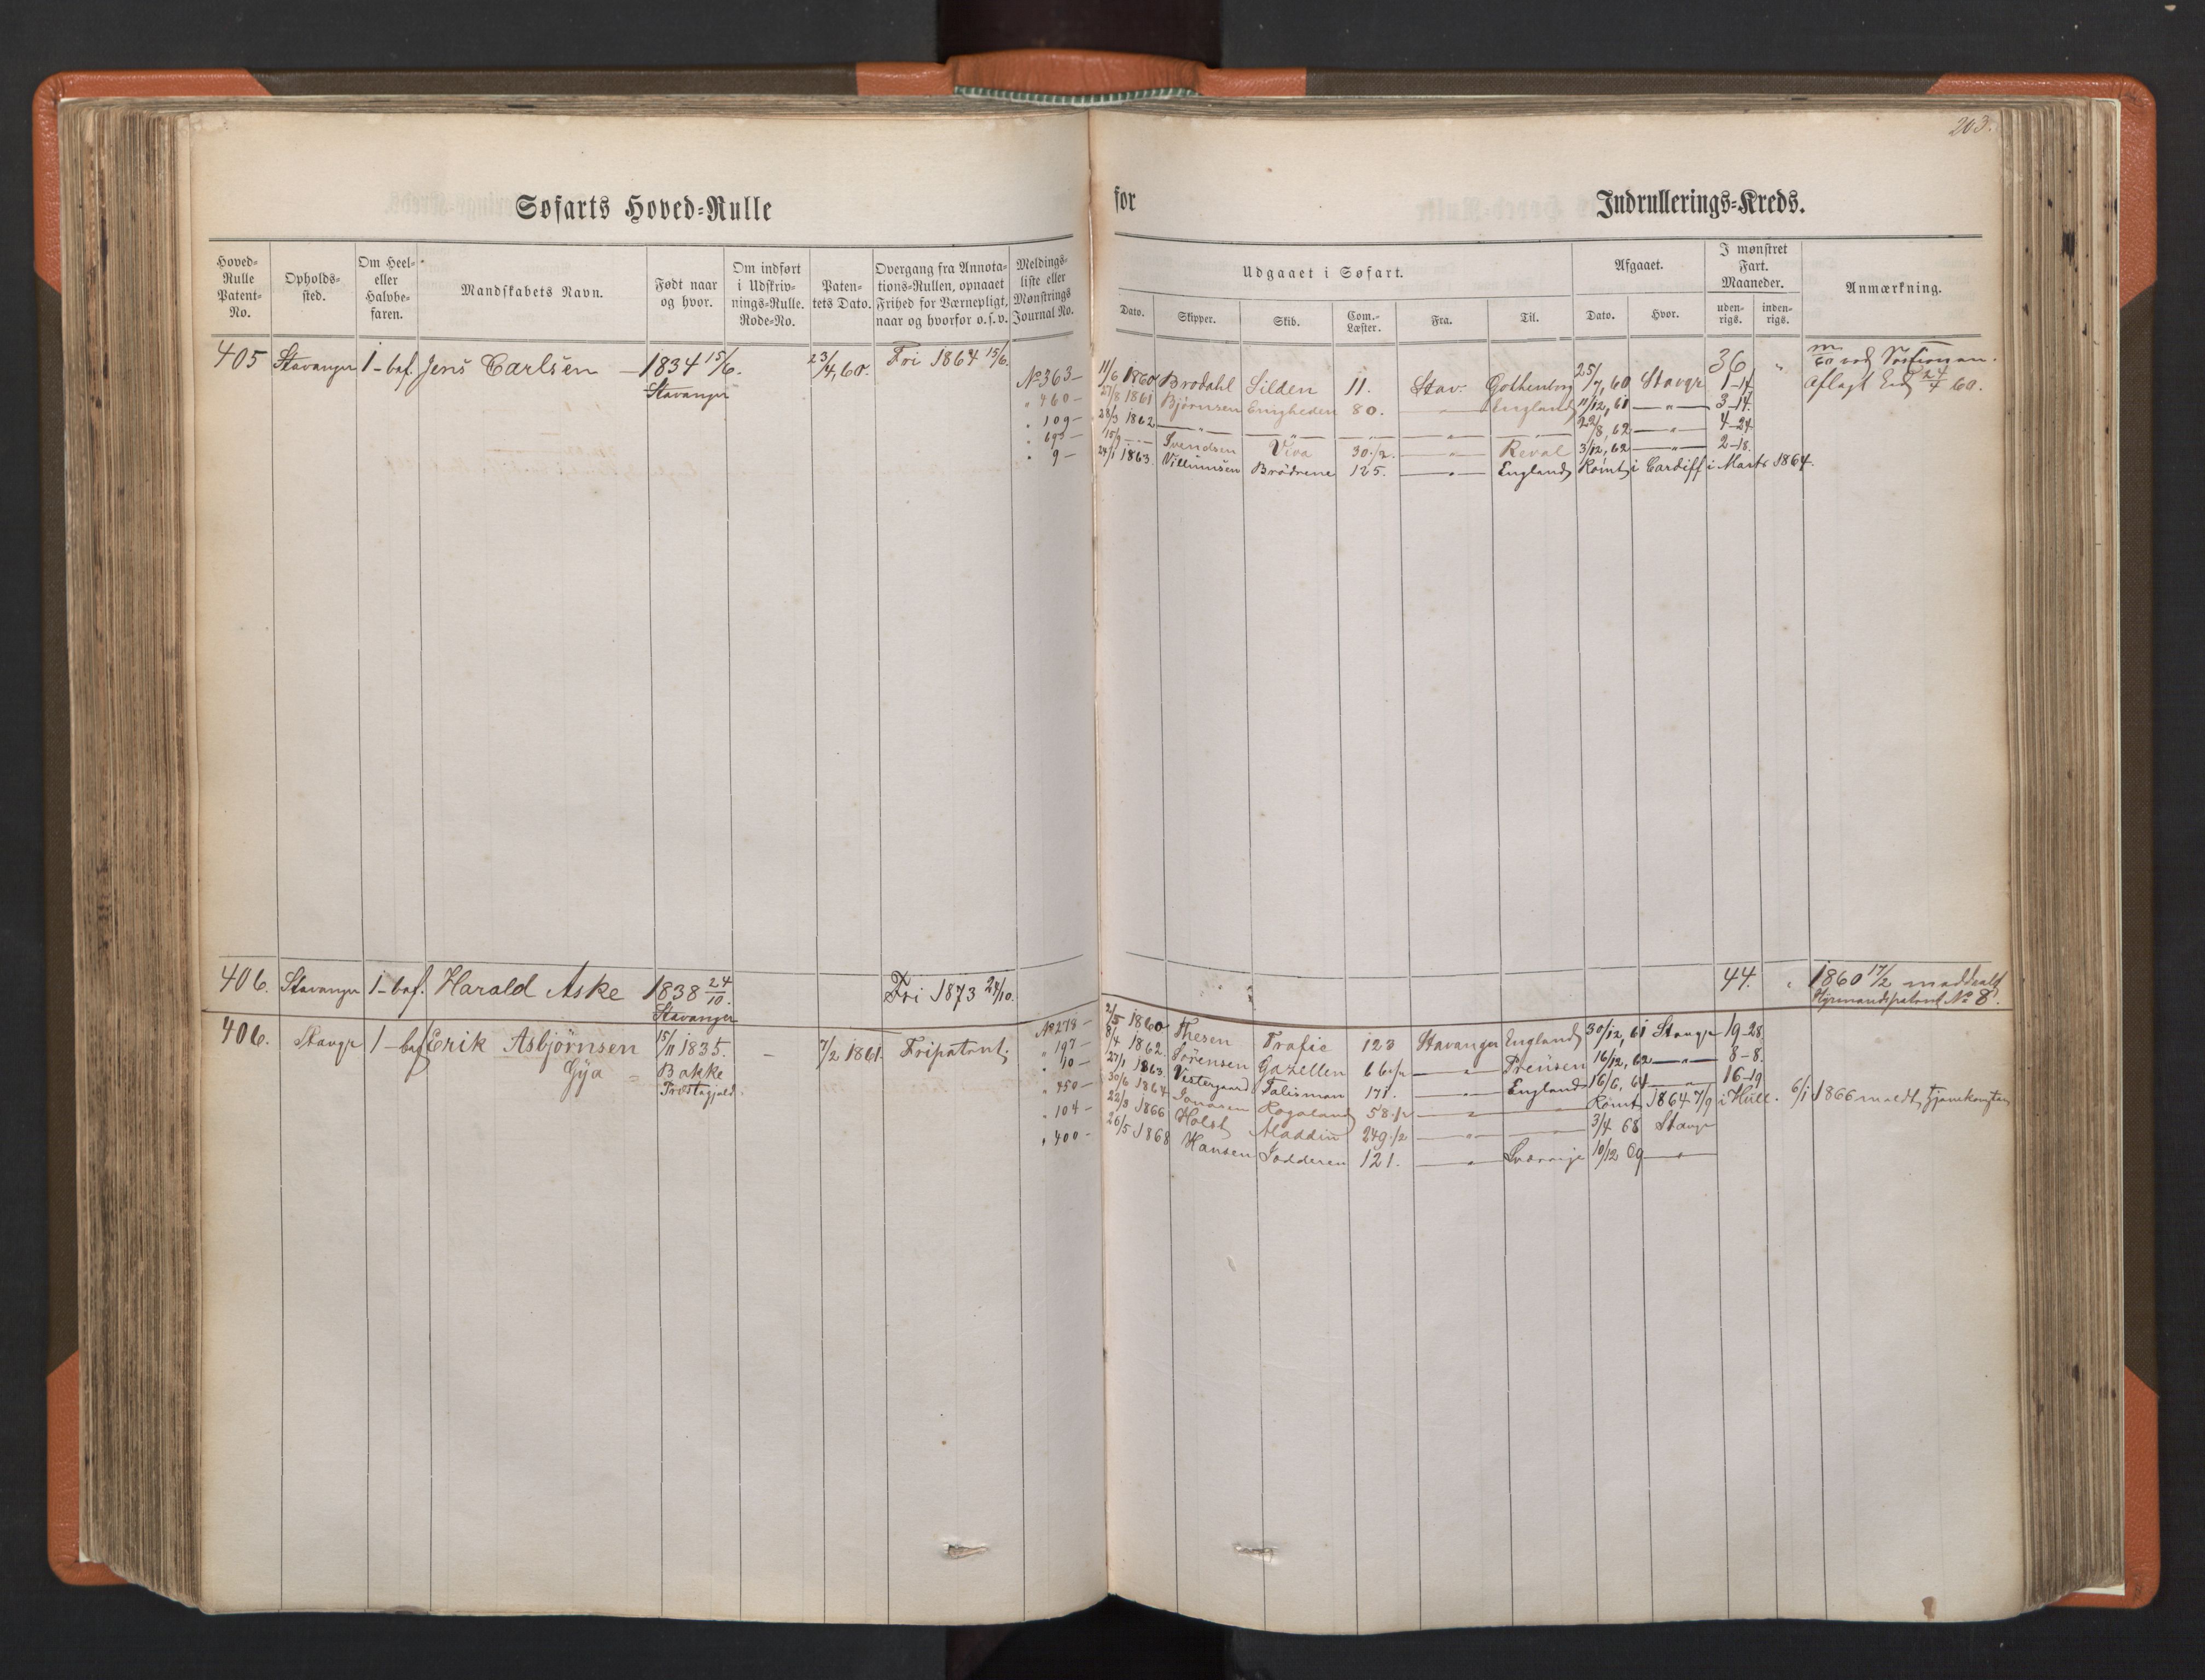 203.
Søfarts Hoved-Rulle
for Indrullerings-Kreds.
Hoved-Rulle Patent-No. Opholds-sted. Om Heel- eller Halvbe-faren. Mandskabets Navn. Født naar og hvor. Om indført i Udskriv-nings-Rulle. Rode-No. Paten-tets Dato. Overgang fra Annota-tions-Rullen, opnaaet Frihed for Værnepligt, naar og hvorfor o.s.v. Meldings-liste eller Mønstrings Journal No.
Udgaaet i Søfart. Afgaaet. I mønstret Fart. Maaneder. Anmærkning.
Dato. Skipper. Skib. Com.-Læster. Fra. Til. Dato. Hvor. uden-rigs. inden-rigs.
405 Stavanger 1-bef. Jens Carlsen 1834 15/6. 23/4, 60. Fri 1864 15/6. 36 "
Stavanger
No 363 - 11/6 1860 Brodahl Silden 11. Stav. Gothenborg 25/7, 60 Stavgr 1-14 Aflagt Ed 24/4 60.
" 460 - 21/8 1861 Bjørnsen Enigheden 80. " England 11/12, 61 " 3-14.
" 109 - 28/3 1862 " " " " " 22/8, 62 " 4-24
" 695 - 15/9 - Svendsen Viva 30 1/2. " Reval 3/12, 62 " 2-18.
" 9 - 24/1 1863. Villumsen Brödrene 125. " England Römt i Cardiff i Marts 1864.
406. Stavanger 1-bef. Harald Aske 1838 24/10. Fri 1873 24/10. 44. " 1860 17/2 meddealt
Stavanger Styrmandspatent No 8.
406. Stavgr 1-bef Erik Asbjörnsen 15/11 1835. - 7/2 1861. Fripatent;
Gya = Bakke
No 278 - 2/5 1860 Thesen Trafic 123 Stavanger England 30/12, 61 Stavgr 19-28
" 197 - 8/4 1862. Sörensen Gazellen 66 1/2 " Preusen 16/12, 62 " 8-8.
" 10 - 27/1 1863. Vestergaard Talisman 171. " England 16/6, 64 " 16-19
" 450 - 30/6 1864 Jonasen Rogaland 58 1/2 " " Römt 1864 7/9 i Hull. 6/1 1866 meldt hjemkomsten
" 104 - 22/3 1866 Holst Aladdin 249 1/2 " " 3/4 68 Stavgr
" 400 - 26/5 1868 Hansen Jædderen 121. " Sverrige 10/12 69 "